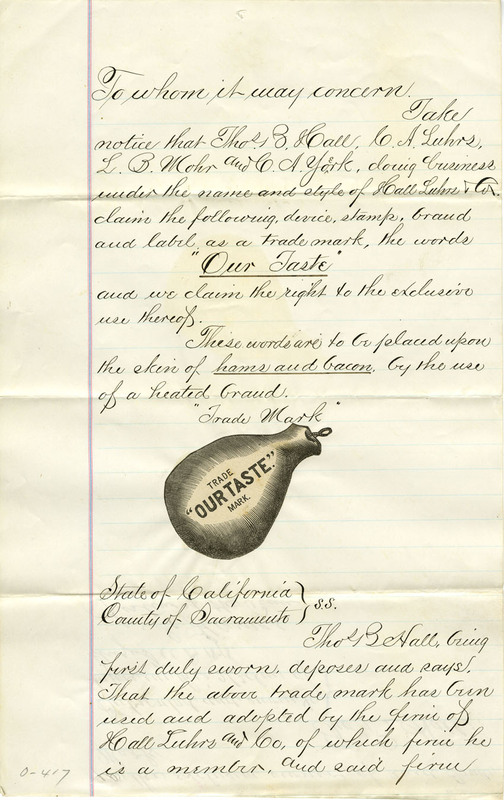 To whom it may concern.
Take
notice that Thos. B. Hall, C. A. Luhrs,
L. B. Mohr and C. A. York, doing business
under the name and style of Hall Luhrs & Co.
claim the following, device, stamp, brand
and label, as a trade mark, the words
"Our Taste"
and we claim the right to the exclusive
use thereof.
These words are to be placed upon
the skin of hams and bacon, by the use
of a heated brand.
"Trade Mark"
TRADE
"OUR TASTE."
MARK.
State of California
County of Sacramento } S.S.
Thos B Hall, being
first duly sworn, deposes and says,
That the above trade mark has been
used and adopted by the firm of
Hall Luhrs and Co, of which firm he
is a member, and said firm
0-417